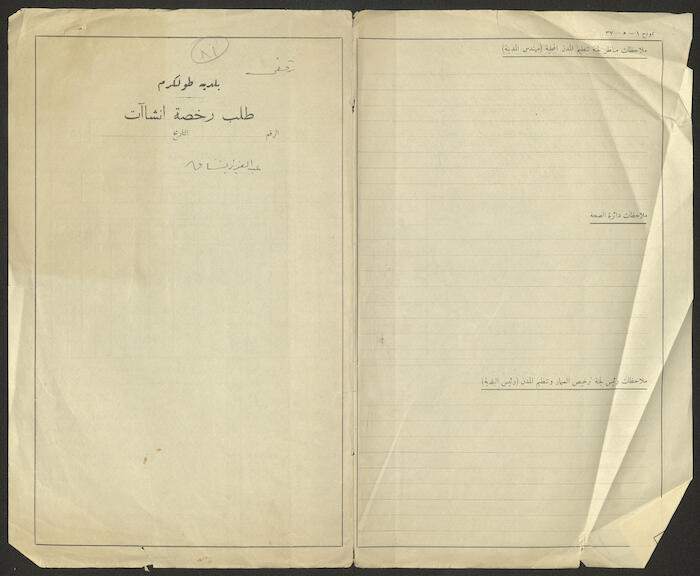 نموذج ١ - ٥ - ٣٧
ملاحظات مناظر لجنة تنظيم المدن المحلية (مهندس البلدية)
ملاحظات دائرة الصحة
ملاحظات رئيس لجنة ترخيص العمار وتنظيم المدن (رئيس البلدية)
٨١
بلدية طولكرم
طلب رخصة انشاآت
الرقم التاريخ
عبد العزيز